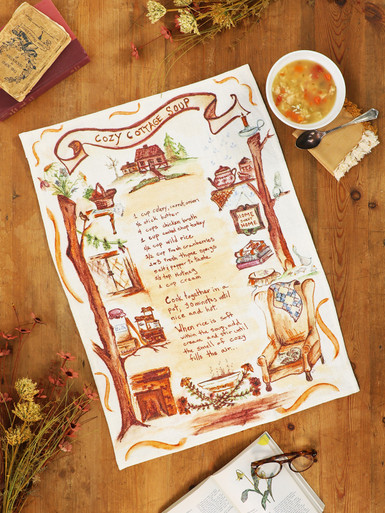 COZY COTTAGE SOUP
1 cup celery, carrot, onion
½ stick butter
4 cups chicken broth
2 cups cooked chop turkey
½ cup wild rice
3/4 cup fresh cranberries
2-3 fresh thyme sprigs
salt, pepper to taste
½ tsp nutmeg
1 cup cream
HOME
SWEET
HOME
Cook together in a
pot, 30 minutes until
nice and hot.
When rice is soft
within the song, add
cream and stir until
the smell of cozy
fills the air.